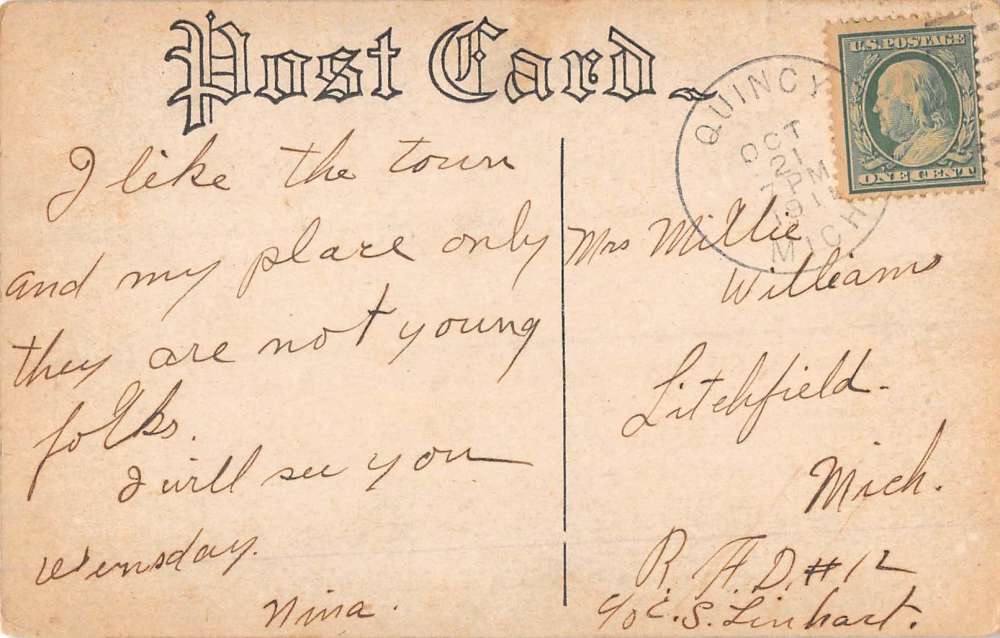 Post Card
U.S. POSTAGE
ONE CENT
QUINCY
OCT
21
7 PM
1911
MICH
I like the town
and my place only
they are not young
folks.
I will see you
Wensday.
Nina.
Mrs Millie
Williams
Litchfield.
Mich.
R. F. D. #12
c/o C. S. Linhart.